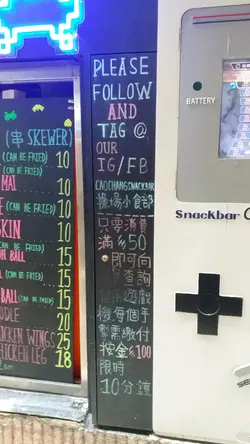 (串 SKEWER)
(CAN BE FRIED) 10
MAI 10
(CAN BE FRIED) 10
SKIN 10
BALL 15
15
BALL (CAN BE FRIED) 15
15
20
CHICKEN WINGS 25
CHICKEN LEG 18
PLEASE
FOLLOW
AND
TAG @
OUR
IG/FB
CAOCHANGSNACKBAR
操場小食部
只要消費
滿$50
即可向
查詢
遊戲
機每個手
繳付
按金$100
限時
10分鐘
BATTERY
Snackbar